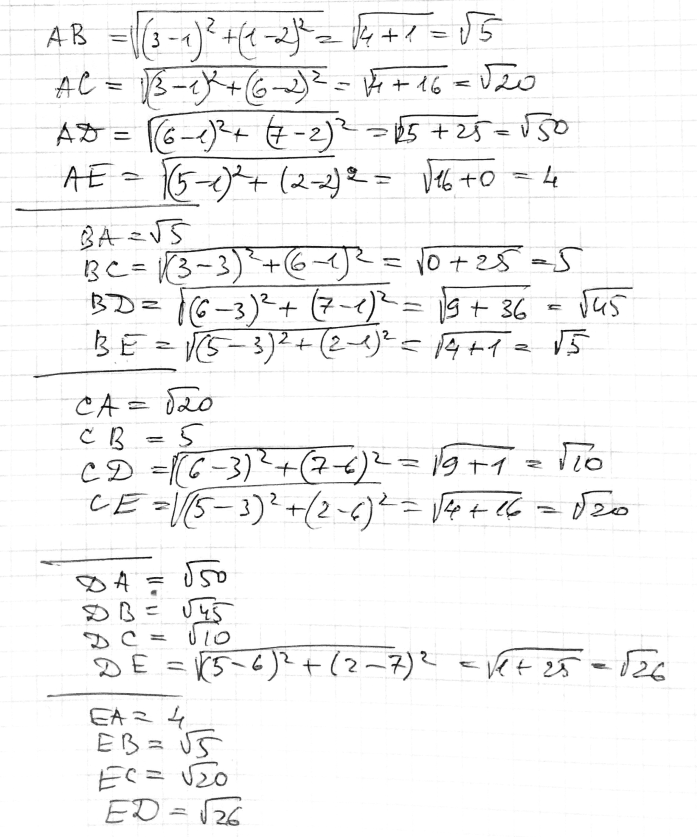 AB = √((3-1)²+(1-2)²) = √(4+1) = √5
AC = √((3-1)²+(6-2)²) = √(4+16) = √20
AD = √((6-1)²+(7-2)²) = √(25+25) = √50
AE = √((5-1)²+(2-2)²) = √(16+0) = 4
BA = √5
BC = √((3-3)²+(6-1)²) = √(0+25) = 5
BD = √((6-3)²+(7-1)²) = √(9+36) = √45
BE = √((5-3)²+(2-1)²) = √(4+1) = √5
CA = √20
CB = 5
CD = √((6-3)²+(7-6)²) = √(9+1) = √10
CE = √((5-3)²+(2-6)²) = √(4+16) = √20
DA = √50
DB = √45
DC = √10
DE = √((5-6)²+(2-7)²) = √(1+25) = √26
EA = 4
EB = √5
EC = √20
ED = √26